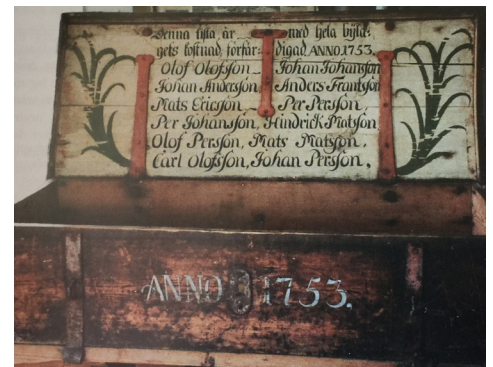 Denna kista är med hela byla:
gets kostnad, förfär: digad, ANNO.1753.
Olof Olofsson Johan Johansson
Johan Andersson Anders Frantsson
Mats Ericsson Per Persson,
Per Johansson, Hindrick Matsson
Olof Persson, Mats Matsson,
Carl Olofsson, Johan Persson,
ANNO 1753.